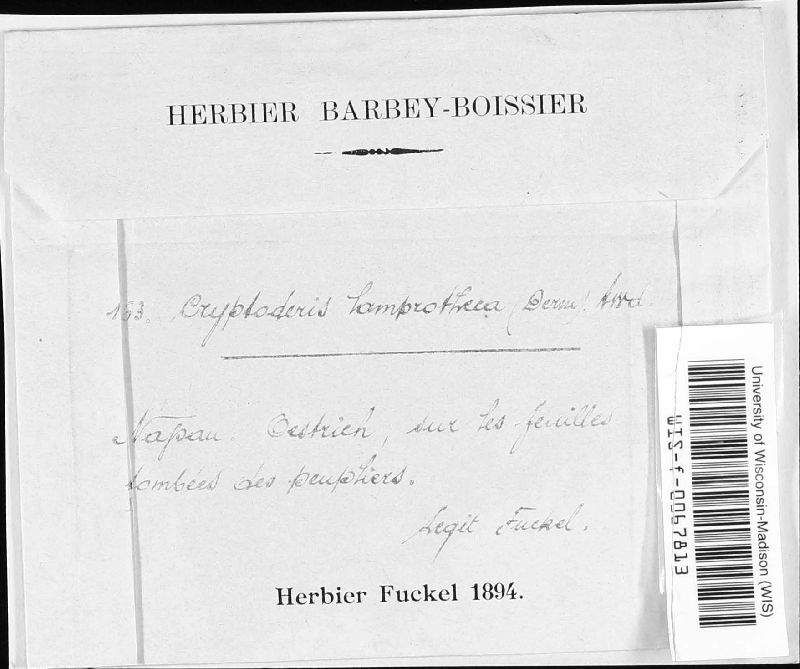 HERBIER BARBEY-BOISSIER
163. Cryptoderis lamprotheca (Desm.) Awd.
Nassau. Oestrich, sur les feuilles
tombées des peupliers.
Legit Fuckel.
Herbier Fuckel 1894.
University of Wisconsin-Madison (WIS)
WIS-f-0067813